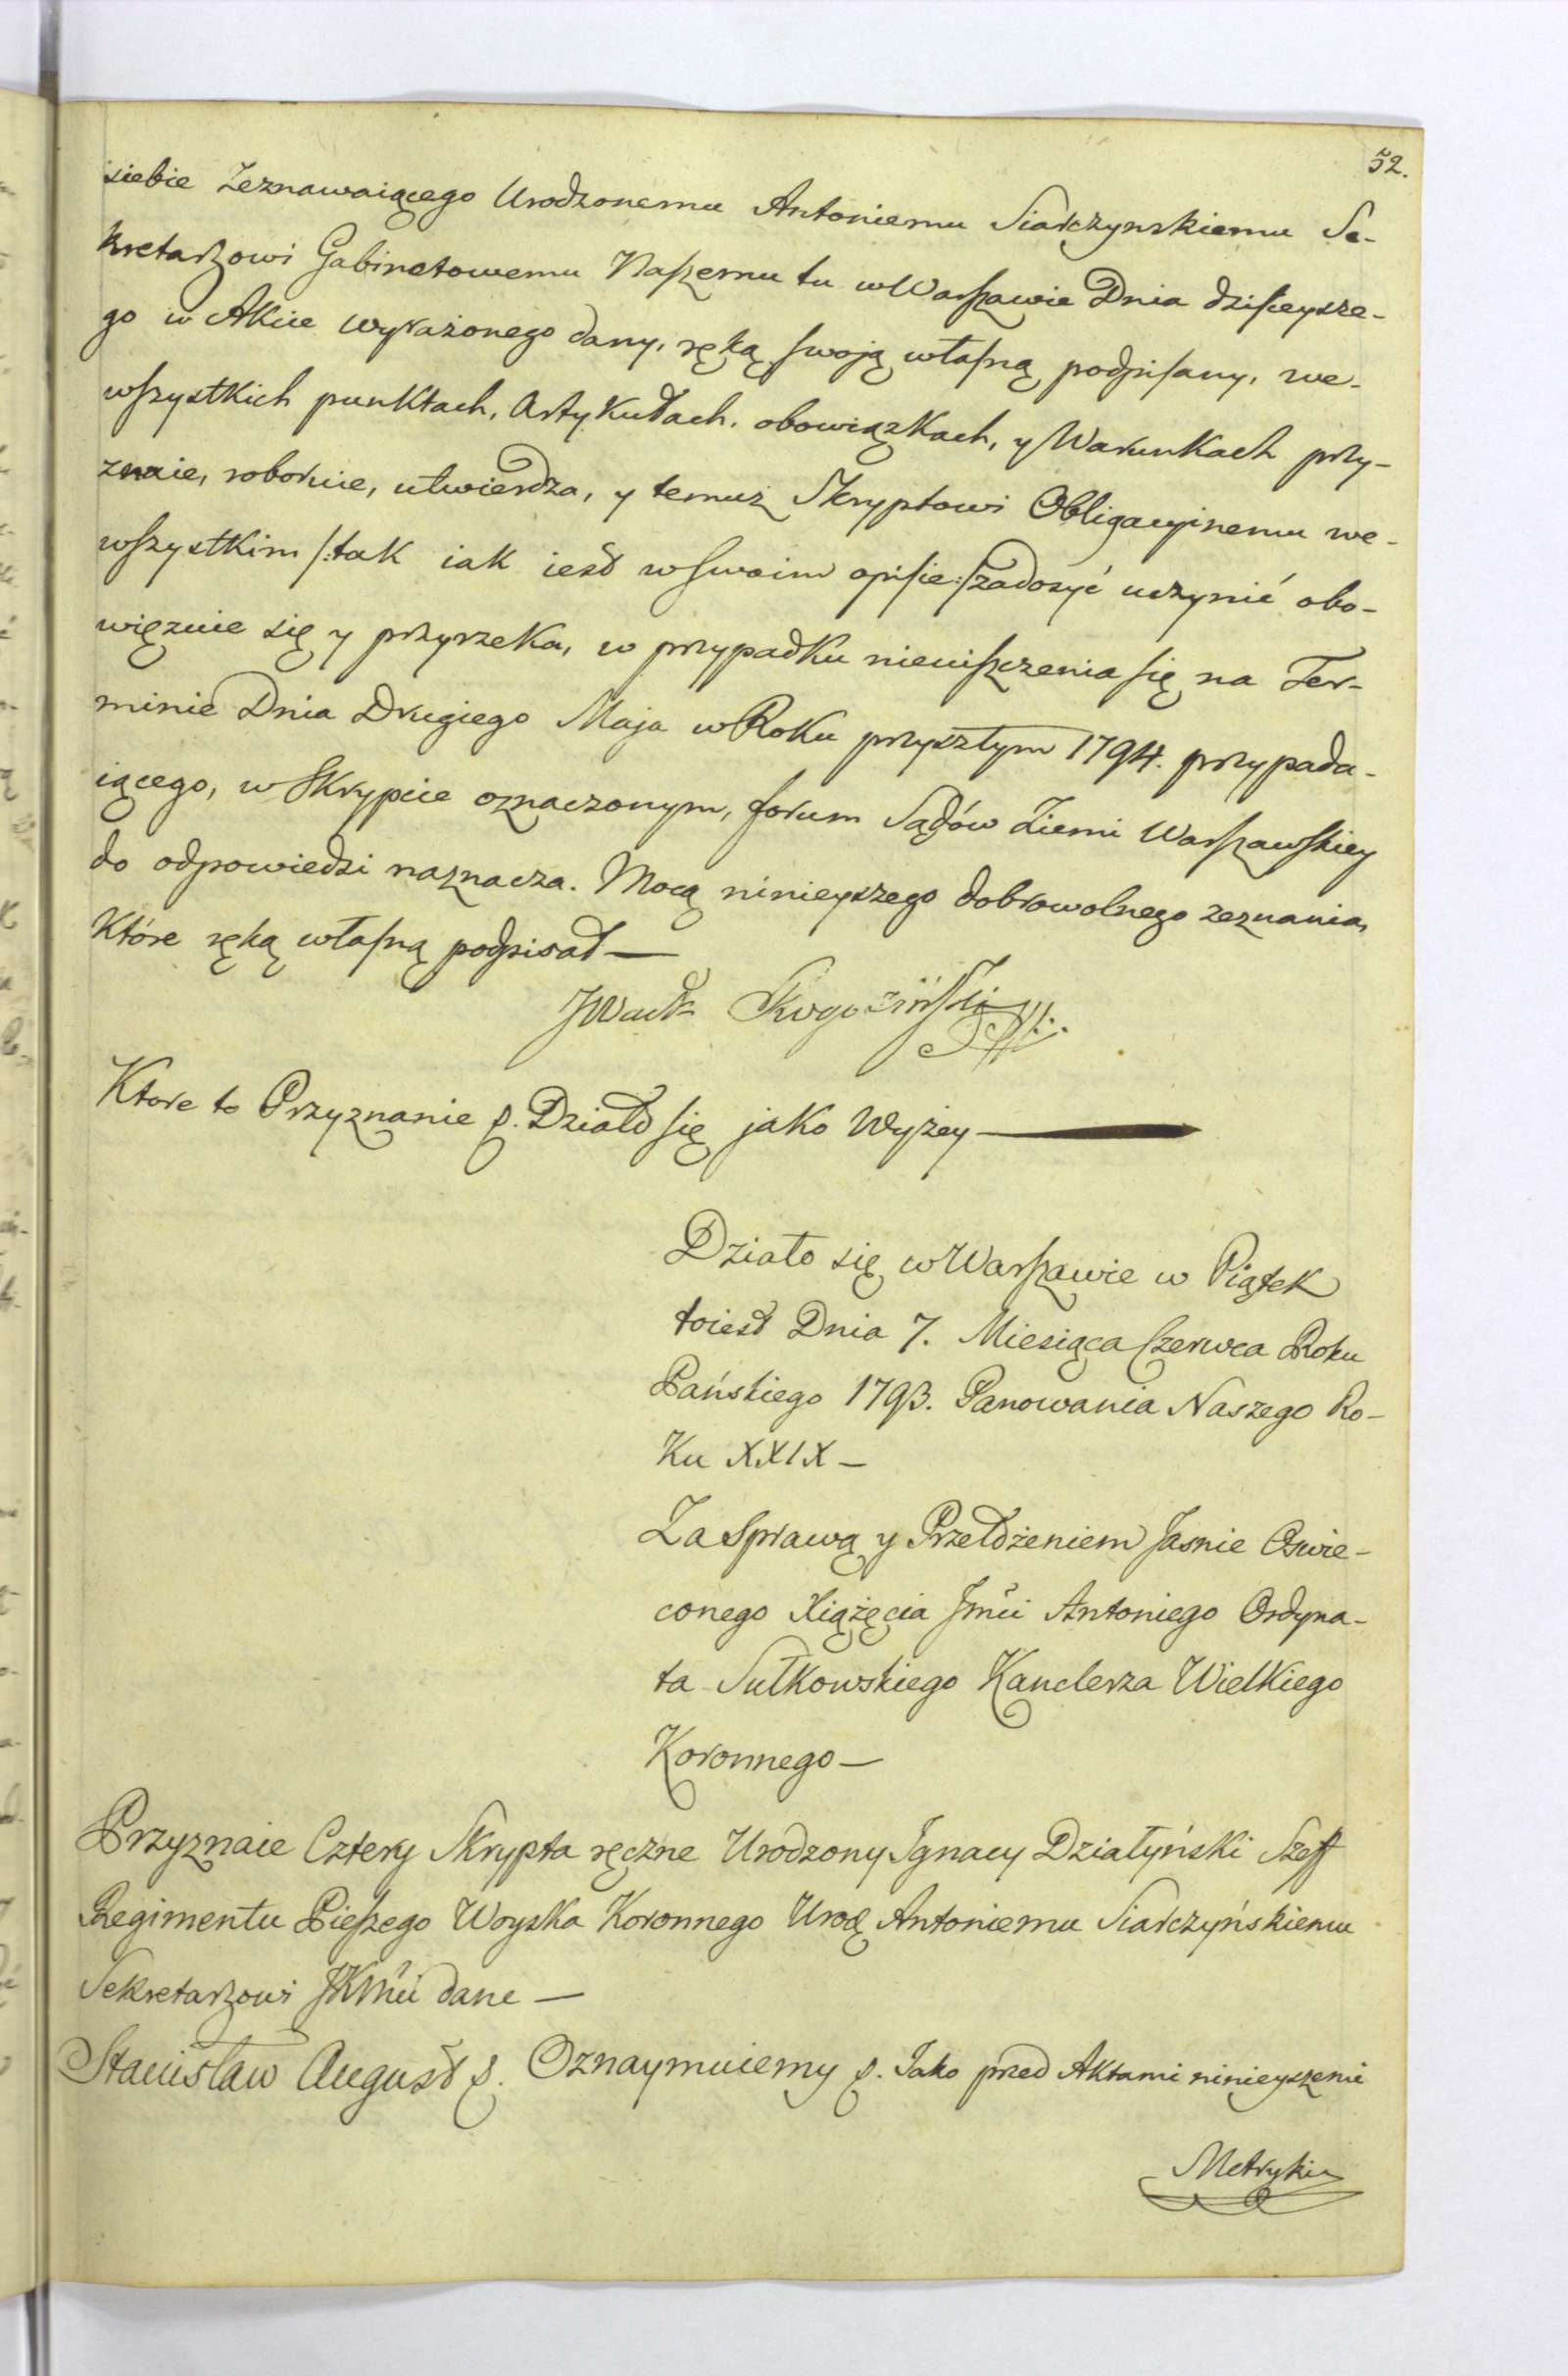 52.
siebie Zeznawaiącego Urodzonemu Antoniemu Siarczynskiemu Se-
kretarzowi Gabinetowemu Naszemu tu w Warszawie Dnia dzisieysze-
go w Akcie wyrażonego dany, ręką swoją własną podpisany, we-
wszystkich punktach, Artykułach, obowiązkach, y Warunkach przy-
znaie, roboruie, utwierdza, y temuż Skryptowi Obligacyinemu we-
wszystkim /:tak iak iest w swoim opisie:/ zadosyć uczynić obo-
więzuie się y przyrzeka, w przypadku nieuiszczenia się na Ter-
minie Dnia Drugiego Maja w Roku przyszłym 1794. przypada-
iącego, w Skrypcie oznaczonym, forum Sądów Ziemi Warszawskiey
do odpowiedzi naznacza. Mocą ninieyszego dobrowolnego zeznania,
Które ręką własną podpisał —
Ktore to Przyznanie &. Działo się jako Wyżey —
Działo się w Warszawie w Piątek
toiest Dnia 7. Miesiąca Czerwca Roku
Pańskiego 1793. Panowania Naszego Ro-
ku XXIX —
Za Sprawą y Przełożeniem Jasnie Oswie-
conego Xiążęcia Jmći Antoniego Ordyna-
ta Sułkowskiego Kanclerza Wielkiego
Koronnego —
Przyznaie Cztery Skrypta ręczne Urodzony Ignacy Działyński Szeff
Regimentu Pieszego Woyska Koronnego Urod Antoniemu Siarczyńskiemu
Sekretarzowi JKMći dane —
Stanisław August &. Oznaymuiemy &. Jako przed Aktami ninieyszemi
Metryki